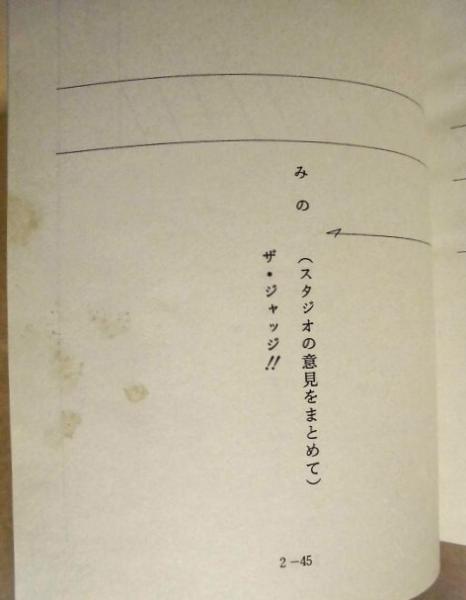 みの
(スタジオの意見をまとめて)
ザ・ジャッジ!!
2-45